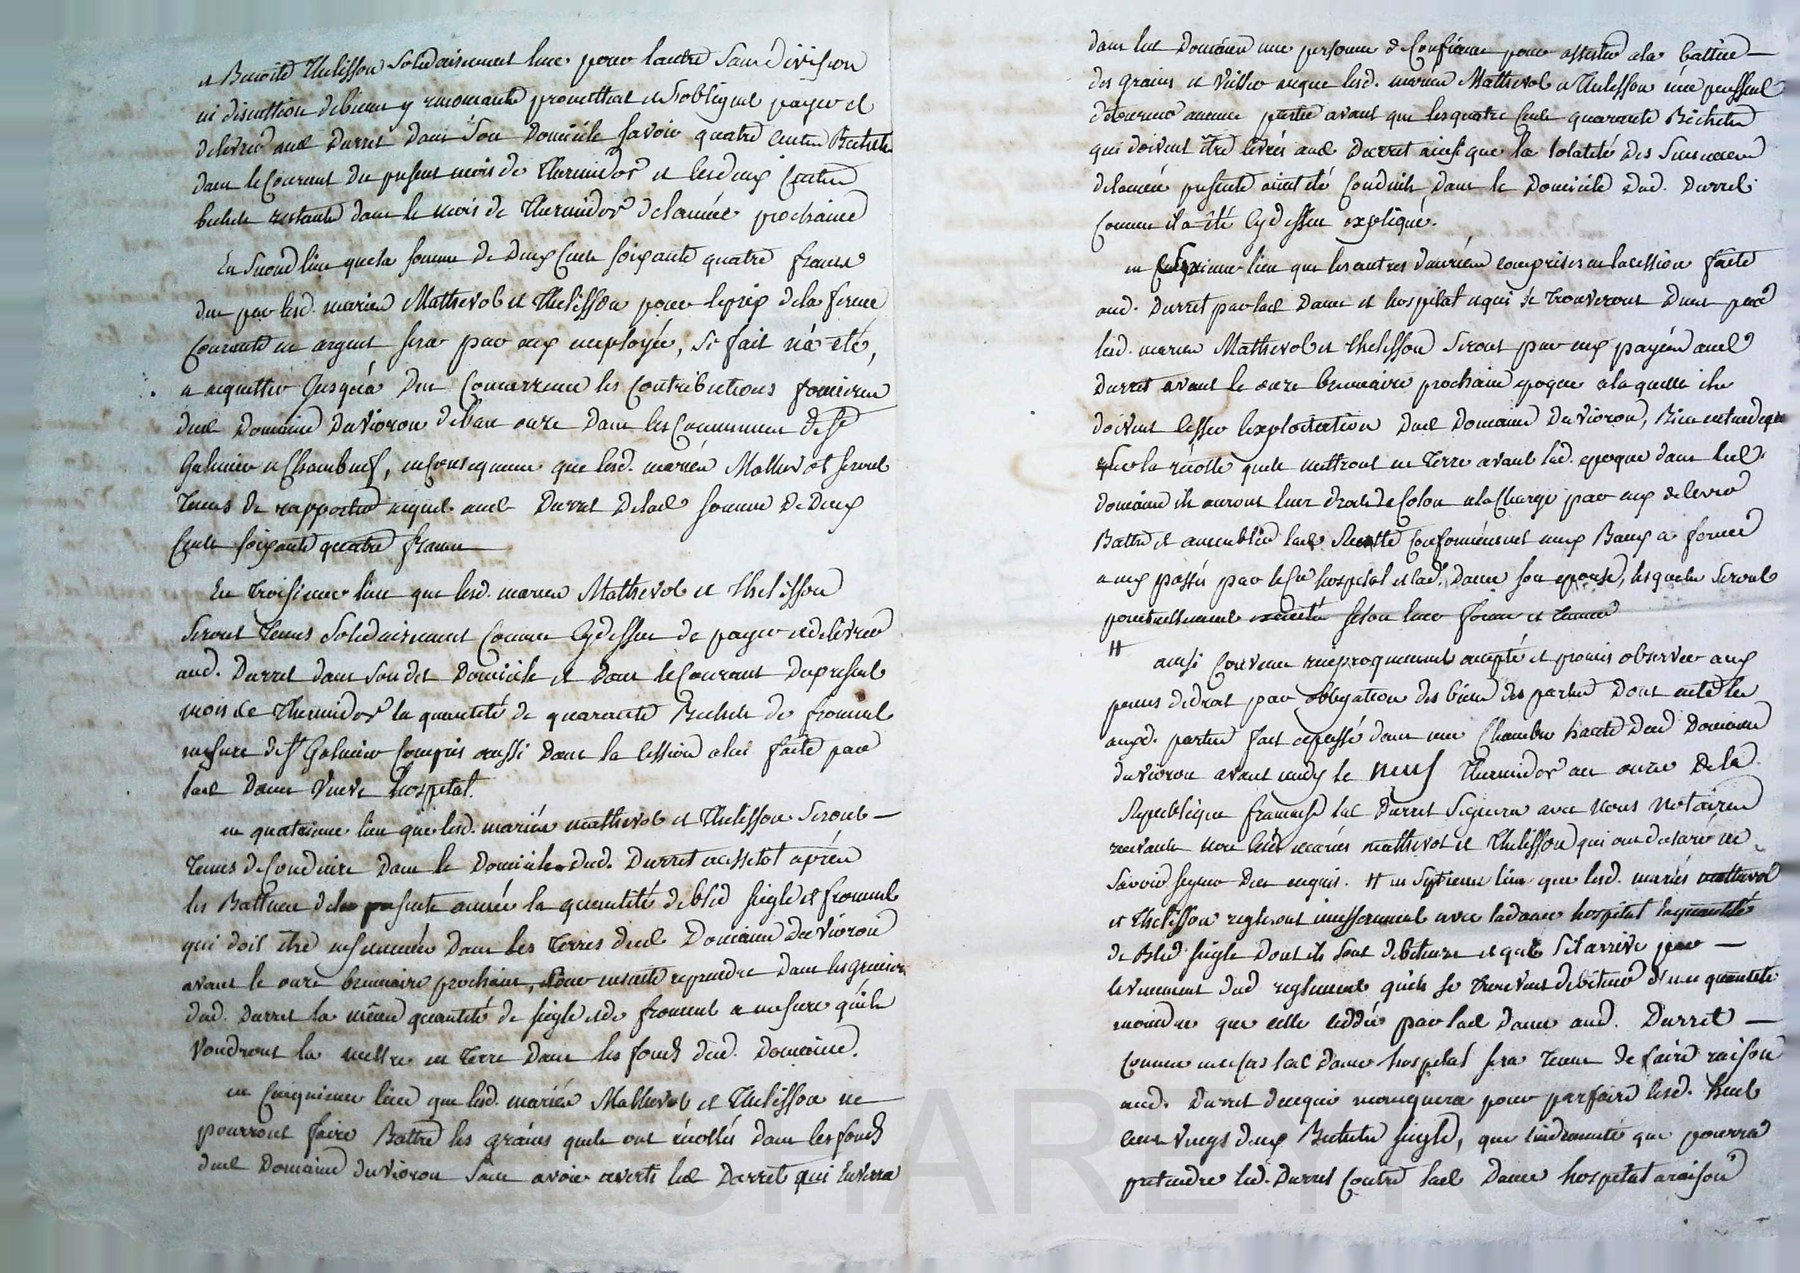 et Benoite Thelisson solidairement lune pour lautre sans division
ni discution debiens y renoncants promettent et sobligent payer et
delivrer aud Durret dans son Domicile savoir quatre Cents Bichets
dans le Courant du present mois de Thermidor et les deux Cents
bichets restants dans le mois de Thermidor delannée prochaine
En second lieu que la somme de Deux Cents soixante quatre francs
due par lesd. mariés Mathevot et Thelisson pour le prix de la ferme
Courante en argent sera par eux employée, si fait n'a été,
a acquitter jusqu'a due Concurrence les Contributions foncieres
dud Domaine Duvioron delan onze dans les Communes de St
Galmier et Chambœuf, enconsequence que lesd. mariés Mathevot seront
tenus de rapporter acquit aud Durret delad somme de Deux
Cents soixante quatre francs
En troisieme lieu que lesd. mariés Mathevot et Thelisson
seront tenus solidairement Comme cydessus de payer et delivrer
aud. Durret dans sondit Domicile et dans le Courant du present
mois de Thermidor la quantité de quarante Bichets de froment
mesure de St Galmier compris aussi dans la cession a lui faite par
lad Dame Veuve hospital.
en quatrieme lieu que lesd. mariés mathevot et Thelisson seront
tenus de Conduire dans le Domicile dud. Durret aussitot après
les Battues de la presente année la quantité de bled seigle et froment
qui doit être ensemencée dans les terres dud Domaine Duvioron
avant le onze brumaire prochain, pour ensuite reprendre dans les greniers
dud. Durret la même quantité de seigle et de froment a mesure qu'ils
voudront la mettre en terre dans les fonds dud. Domaine.
en Cinquieme lieu que lesd. mariés Mathevot et Thelisson ne
pourront faire Battre les grains quils ont récoltés dans les fonds
dud Domaine duvioron sans avoir averti led Durret qui enverra
dans led Domaine une personne de Confiance pour assister a la battue
des grains et veiller aceque lesd. mariés Mathevot et Thelisson n'en puissent
detourner aucune partie avant que les quatre Cents quarante Bichets
qui doivent être livrés aud Durret ainsi que la totalité des semences
delannée presente aient été Conduits dans le Domicile dud. Durret
Comme il a été Cydessus expliqué.
en sixieme lieu que les autres danrées comprises en lacession faite
aud. Durret par lad Dame et hospital et qui se trouveront dues par
lesd. mariés Mathevot et Thelisson seront par eux payées aud
Durret avant le onze brumaire prochain epoque a la quelle ils
doivent cesser lexploitation dud Domaine Duvioron, Bien entendu que
sur la récolte quils mettront en terre avant lad. epoque dans led
domaine ils auront leur droit de Colon a la Charge par eux de lever
Battre et assembler lad Recolte Conformément aux Baux a ferme
a eux passés par le Cn hospital et lad. Dame son epouse, lesquels seront
ponctuellement selon leur forme et teneur
# ainsi Convenu reciproquement accepté et promis observer aux
peines dedroit par obligation des biens des parties Dont acte lu
auxd. parties fait et passé dans une Chambre haute Dud Domaine
duvioron avant midy le neuf Thermidor an onze De la
Republique francaise led Durret signera avec nous notaires
recevants non lesd mariés mathevot et Thelisson qui ont declaré ne
savoir signer de ce enquis. # en septieme lieu que lesd. mariés mathevot
et Thelisson regleront incessamment avec lad dame hospital la quantité
de Bled seigle dont ils sont debiteurs et que s'il arrive par
levenement dud reglement qu'ils se trouvent debiteurs d'une quantité
moindre que celle cédée par lad dame aud. Durret
Comme ence cas lad dame hospital sera tenue de faire raison
aud. Durret dece qui manquera pour parfaire lesd. huit
cent vingt deux Bichets seigle, que lindemnité que pourra
pretendre led. Durret Contre lad Dame hospital a raison